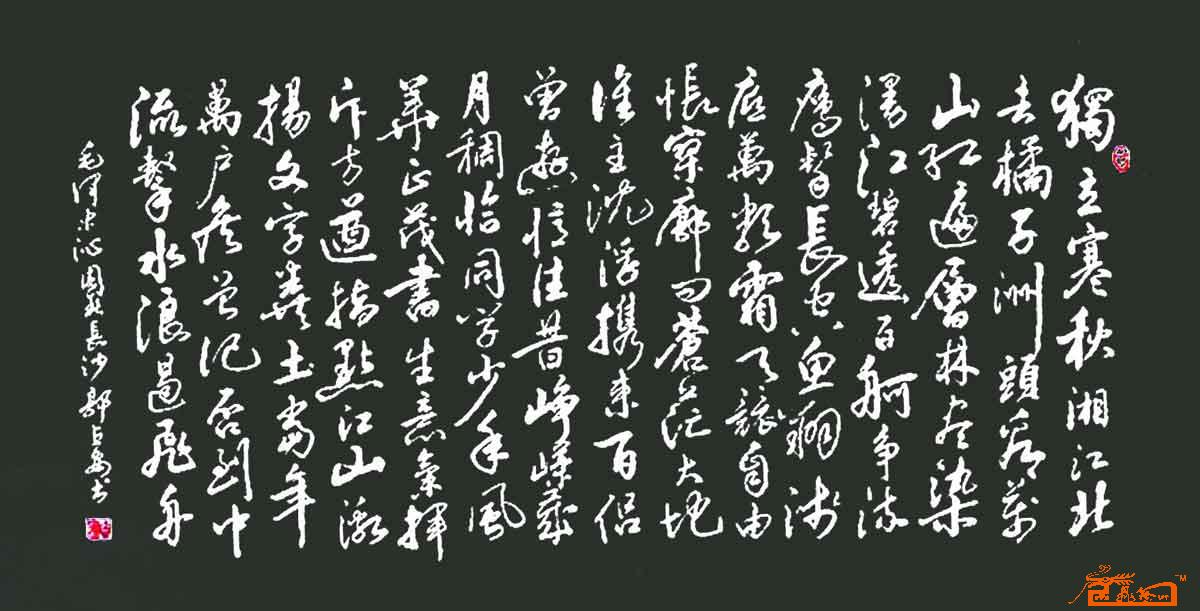 獨立寒秋湘江北
去橘子洲頭看萬
山红遍層林尽染
漫江碧透百舸争流
鹰擊長空魚翔淺
底萬類霜天競自由
悵寥廓问蒼茫大地
谁主沈浮攜来百侣
曾遊憶往昔峥嶸歲
月稠恰同学少年風
華正茂書生意氣揮
斥方遒指點江山激
揚文字糞土當年
萬户侯曾记否到中
流擊水浪遏飛舟
毛澤东沁園春長沙